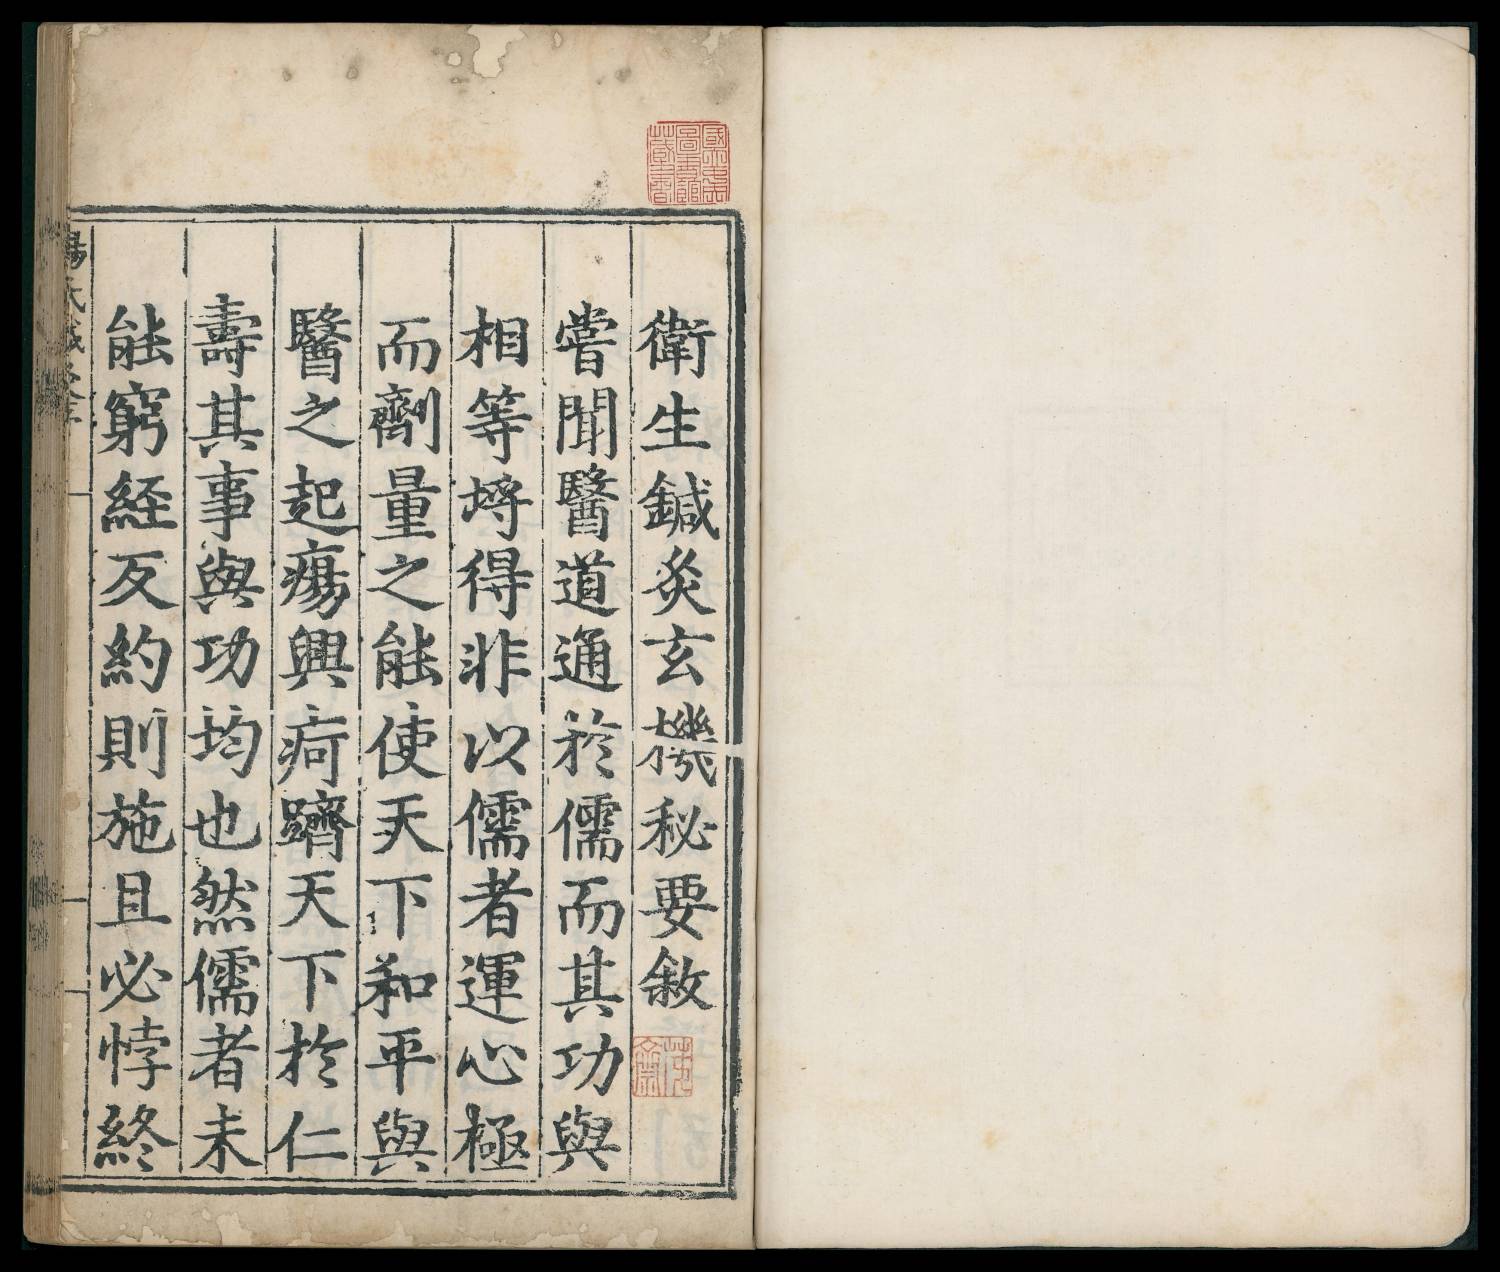 衛生鍼灸玄機秘要敘
嘗聞醫道通於儒而其功與
相等埒得非以儒者運心極
而劑量之能使天下和平與
醫之起瘍興疴躋天下於仁
壽其事與功均也然儒者未
能窮經反約則施且必悖終
國立中央圖書館藏書